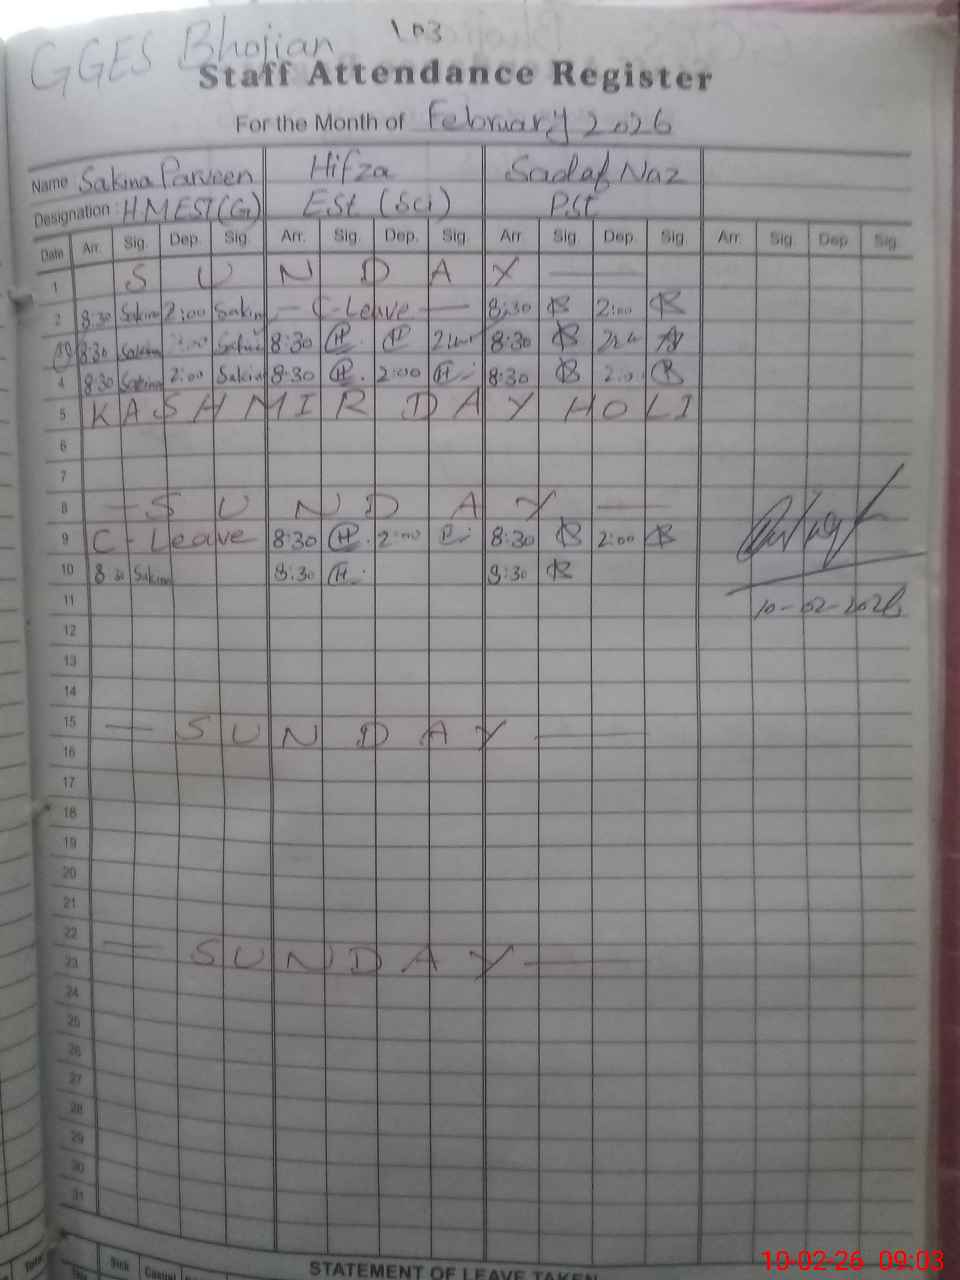 GGES Bhojian
Staff Attendance Register
For the Month of February 2026
Name Sakina Parveen Hifza Sadaf Naz
Designation : HMEST(G) ESt (Sci) PSt
Date Arr. Sig. Dep. Sig. Arr. Sig. Dep. Sig. Arr Sig Dep. Sig. Arr. Sig. Dep Sig.
1 S U N D A Y
2 8:30 Sakina 2:00 Sakin - C-Leave - 8:30 2:00
8:30 Sakina Sakin 8:30 H H 8:30
4 8:30 Sakina 2:00 Sakin 8:30 H. 2:00 H 8:30
5 KASHMIR DAY HOLI
6
7
8 - S U N D A Y -
9 C - Leave 8:30 H. 2:00 8:30 2:00
10 8 30 Sakina 8:30 H. 8:30
11 10-02-2026
12
13
14
15 - S U N D A Y -
16
17
18
19
20
21
22
23 - S U N D A Y -
24
25
26
27
28
29
30
31
Sick Casual
STATEMENT OF LEAVE TAKEN
10-02-26 09:03